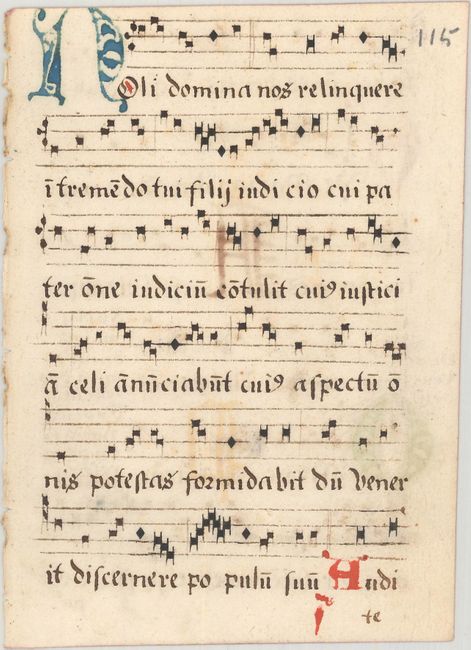 115
Noli domina nos relinquere
ī tremēdo tui filij iudicio cui pa
ter ōne iudiciū cōtulit cuiꝰ iustici
ā celi ānūciabūt cuiꝰ aspectū ō
nis potestas formidabit dū vener
it discernere populū suū Audi
te